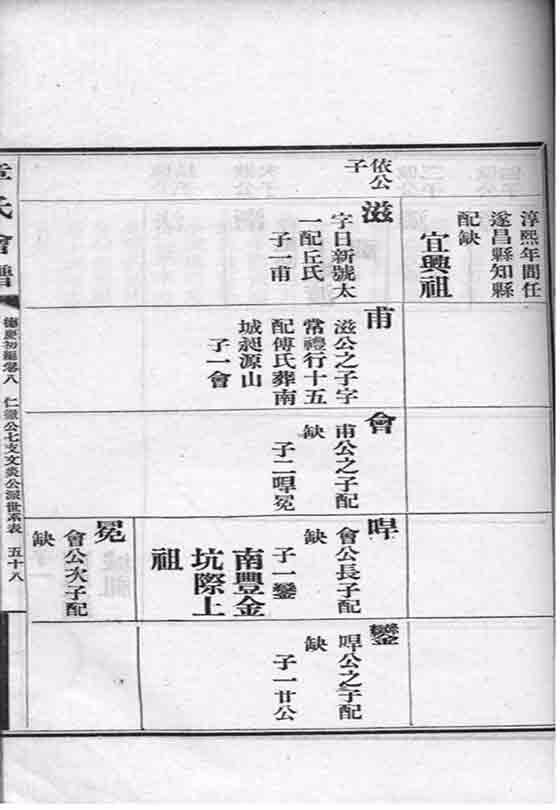 依公
子
淳熙年間任
遂昌縣知縣
配缺
宜興祖
滋
字日新號太
一配丘氏
子一甫
甫
滋公之子字
常禮行十五
配傅氏葬南
城昶源山
子一會
會
甫公之子配
缺
子二啤冕
啤
會公長子配
缺
子一鑾
南豐金
坑際上
祖
冕
會公次子配
缺
鑾
啤公之子配
缺
子一廿公
章氏會譜
德慶初編卷八
仁徹公七支文炎公派世系表
五十八